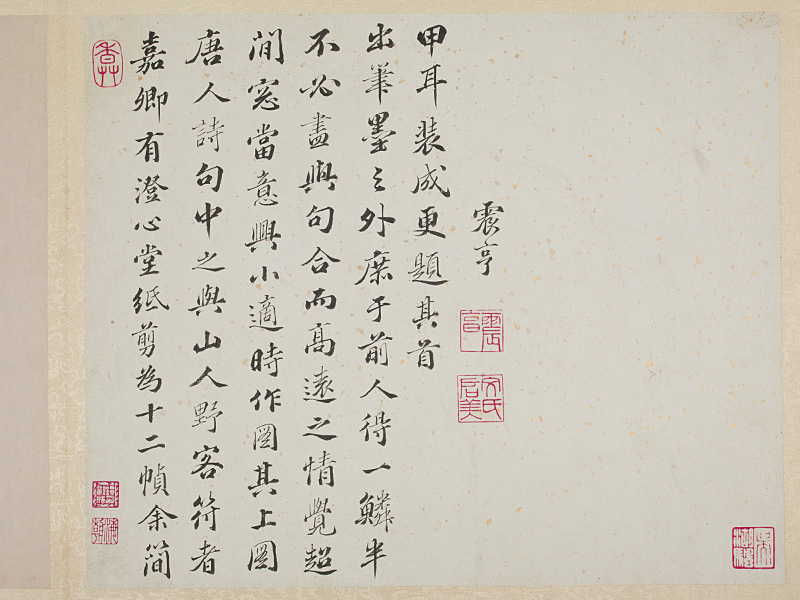 嘉卿有澄心堂紙剪為十二幀余簡
唐人詩句中之與山人野客符者
閒窓當意興小適時作圖其上圖
不必盡與句合而高遠之情覺超
出筆墨之外庶于前人得一鱗半
甲耳裝成更題其首
震亨
震亨
文氏啓美